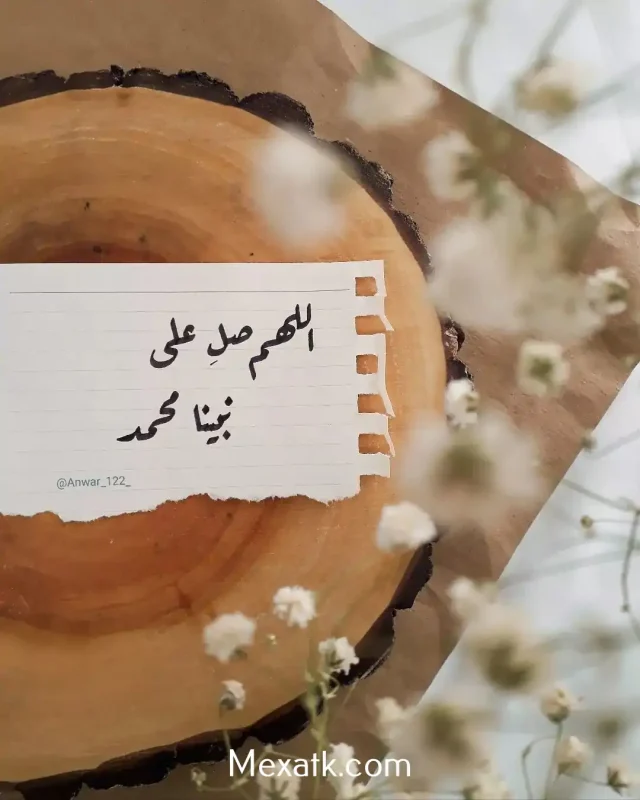 اللهم صلِ على
نبينا محمد
@Anwar_122_
Mexatk.com